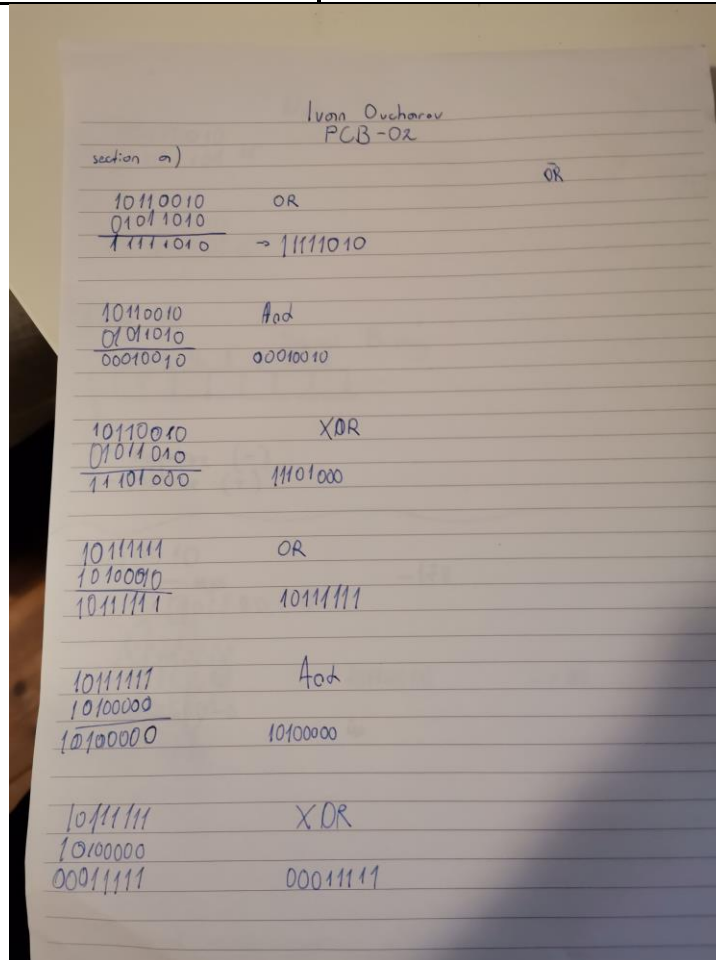 Ivan Ovcharov
PCB-02
section a)
OR
10110010 OR
01011010
11111010 → 11111010
10110010 And
01011010
00010010 00010010
10110010 XOR
01011010
11101000 11101000
10111111 OR
10100000
10111111 10111111
10111111 And
10100000
10100000 10100000
10111111 XOR
10100000
00011111 00011111